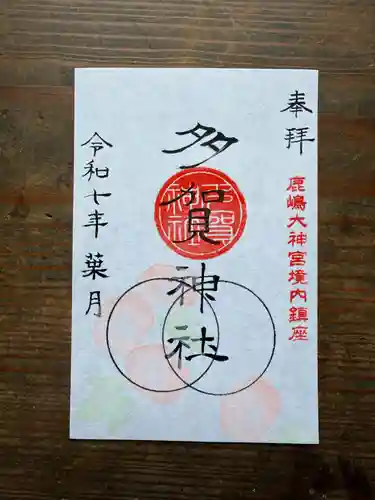 奉拝
鹿嶋大神宮境内鎮座
多賀神社
令和七年葉月